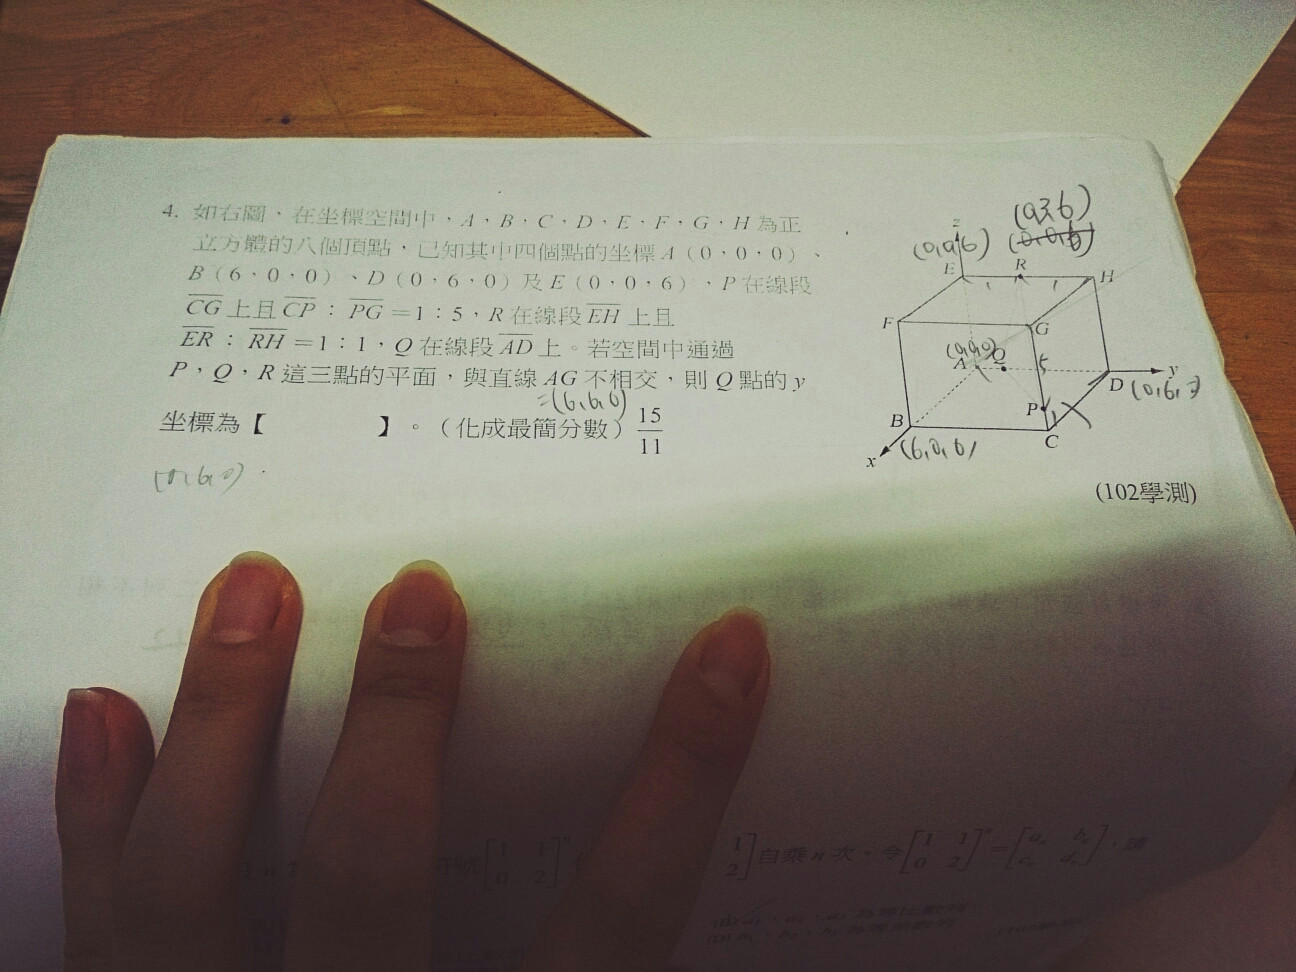 4. 如右圖，在坐標空間中，A、B、C、D、E、F、G、H 為正
立方體的八個頂點，已知其中四個點的坐標 A（0，0，0）、
B（6，0，0）、D（0，6，0）及 E（0，0，6），P 在線段
CG 上且 CP：PG =1：5，R 在線段 EH 上且
ER：RH =1：1，Q 在線段 AD 上。若空間中通過
P，Q，R 這三點的平面，與直線 AG 不相交，則 Q 點的 y
=(6,6,6)
坐標為【 】。（化成最簡分數）15/11
(0,3,6)
z (0,0,6)
E R H
F G
(0,0,0)
A Q 5
D y
P 1
B C
x (6,0,0)
(102學測)
自乘 n 次，令 [1 1 0 2]ⁿ = [aₙ bₙ cₙ dₙ]，